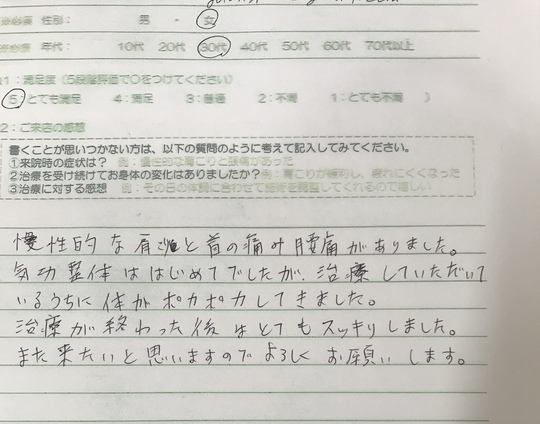 性別： 男 ・ 女
年代： 10代 20代 30代 40代 50代 60代 70代以上
1：満足度（5段階評価で○をつけてください）
5：とても満足 4：満足 3：普通 2：不満 1：とても不満 ）
2：ご来店の感想
書くことが思いつかない方は、以下の質問のように考えて記入してみてください。
①来院時の症状は？ 例：慢性的な肩こりと頭痛があった
②治療を受け続けてお身体の変化はありましたか？ 例：肩こりが緩和し、疲れにくくなった
③治療に対する感想 例：その日の体調に合わせて施術を調整してくれるので嬉しい
慢性的な肩と首の痛み腰痛がありました。
気功整体ははじめてでしたが、治療していただいて
いるうちに体がポカポカしてきました。
治療が終わった後はとてもスッキリしました。
また来たいと思いますのでよろしくお願いします。